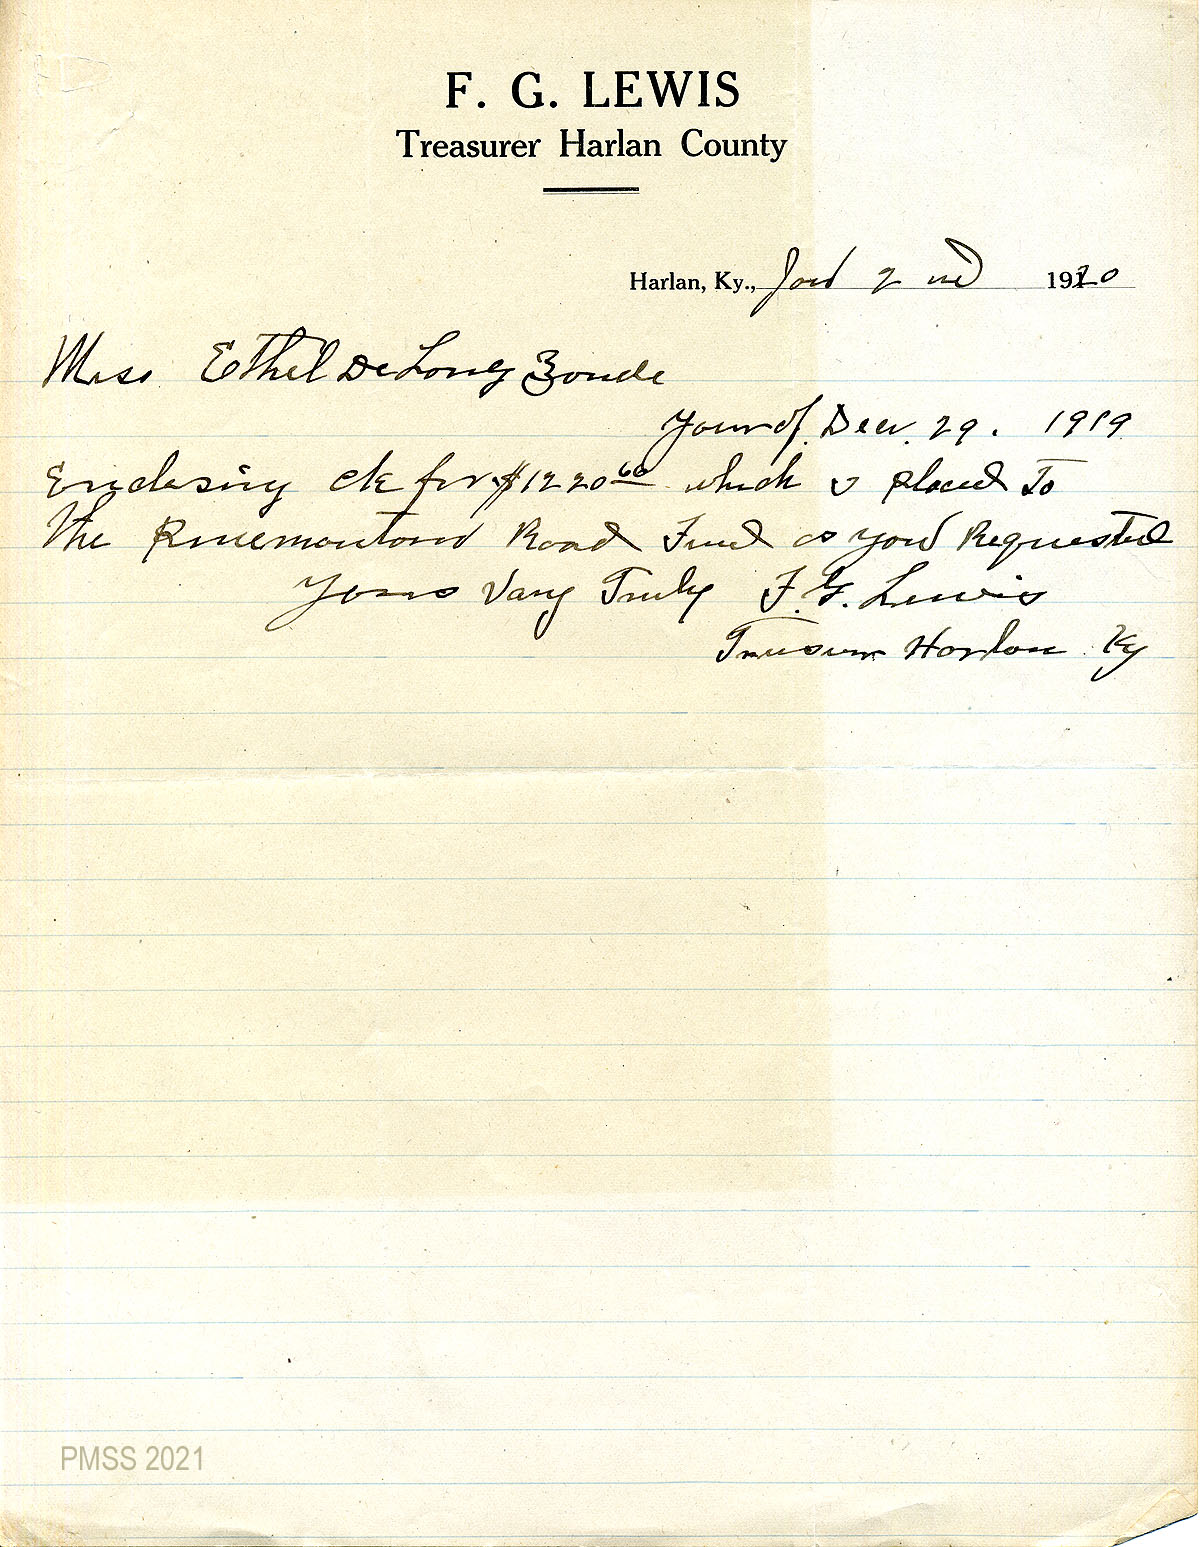 F. G. LEWIS
Treasurer Harlan County
Harlan, Ky., Jan 2nd 1920
Miss Ethel De Long Zande
Your of Dec. 29. 1919
Enclosing ck for $1220 60 which I placed To
The Road Fund as you Requested
Yours Vary Truly F. G. Lewis
Harlan Ky
PMSS 2021